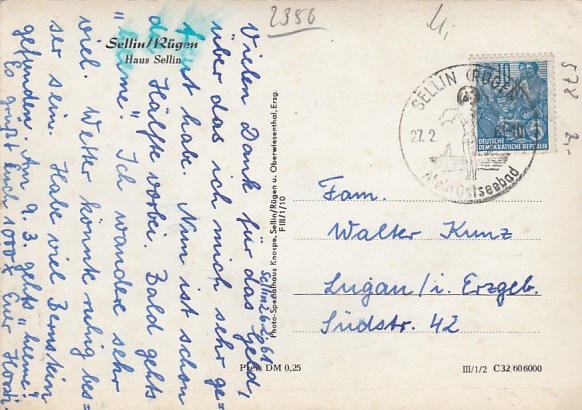 Sellin/Rügen
Haus Sellin
Sellin 26.2.61
Vielen Dank für das Geld,
über das ich mich sehr ge=
freut habe. Nun ist schon
die Hälfte vorbei. Bald gehts
"heeme". Ich wandere sehr
viel. Wetter könnte ruhig bes=
ser sein. Habe viel Bernstein
gefunden. Am 9.3. gehts "heeme"!
Es grüßt Euch 1000x Euer Horst.
Photo-Spezialhaus Knospe, Sellin/Rügen u. Oberwiesenthal, Erzg.
F III/1/10
2386
578
2,-
SELLIN (RÜGEN)
27.2
Ostseebad
10
DEUTSCHE
DEMOKRATISCHE REPUBLIK
Fam.
Walter Kunz
Lugau/i. Erzgeb.
Südstr. 42
Preis DM 0,25
III/1/2 C 32 606000